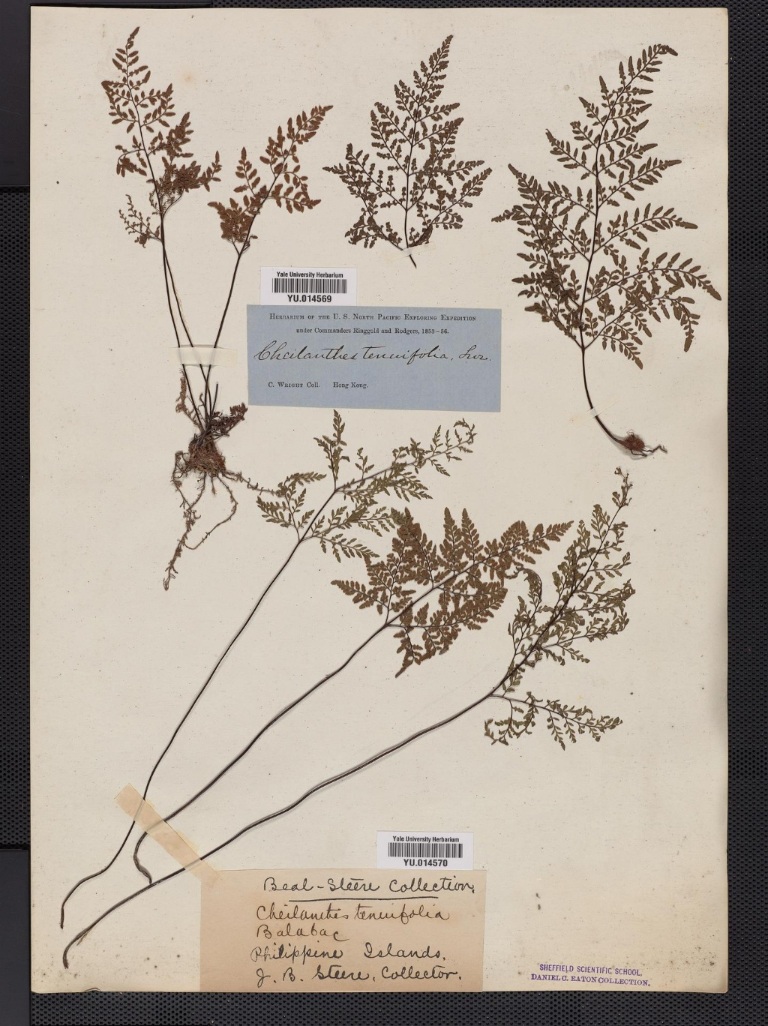 Yale University Herbarium
YU.014569
HERBARIUM OF THE U. S. NORTH PACIFIC EXPLORING EXPEDITION
under Commanders Ringgold and Rodgers, 1853–56.
Cheilanthes tenuifolia, Sw.
C. WRIGHT Coll. Hong Kong.
Yale University Herbarium
YU.014570
Beal-Steere Collection.
Cheilanthes tenuifolia
Balabac
Philippine Islands.
J. B. Steere, Collector.
SHEFFIELD SCIENTIFIC SCHOOL,
DANIEL C. EATON COLLECTION.